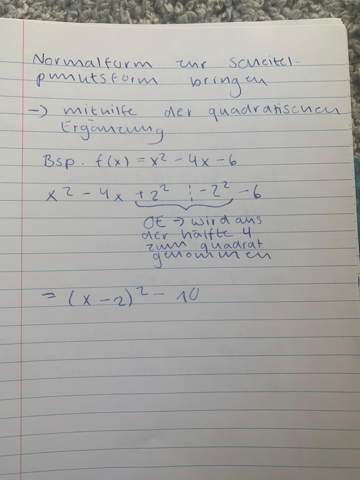 Normalform zur Scheitel-
punktsform bringen
-> mithilfe der quadratischen
Ergänzung
Bsp. f(x) = x² - 4x - 6
x² - 4x + 2² - 2² - 6
QE -> wird aus
der hälfte 4
zum quadrat
genommen
= (x - 2)² - 10